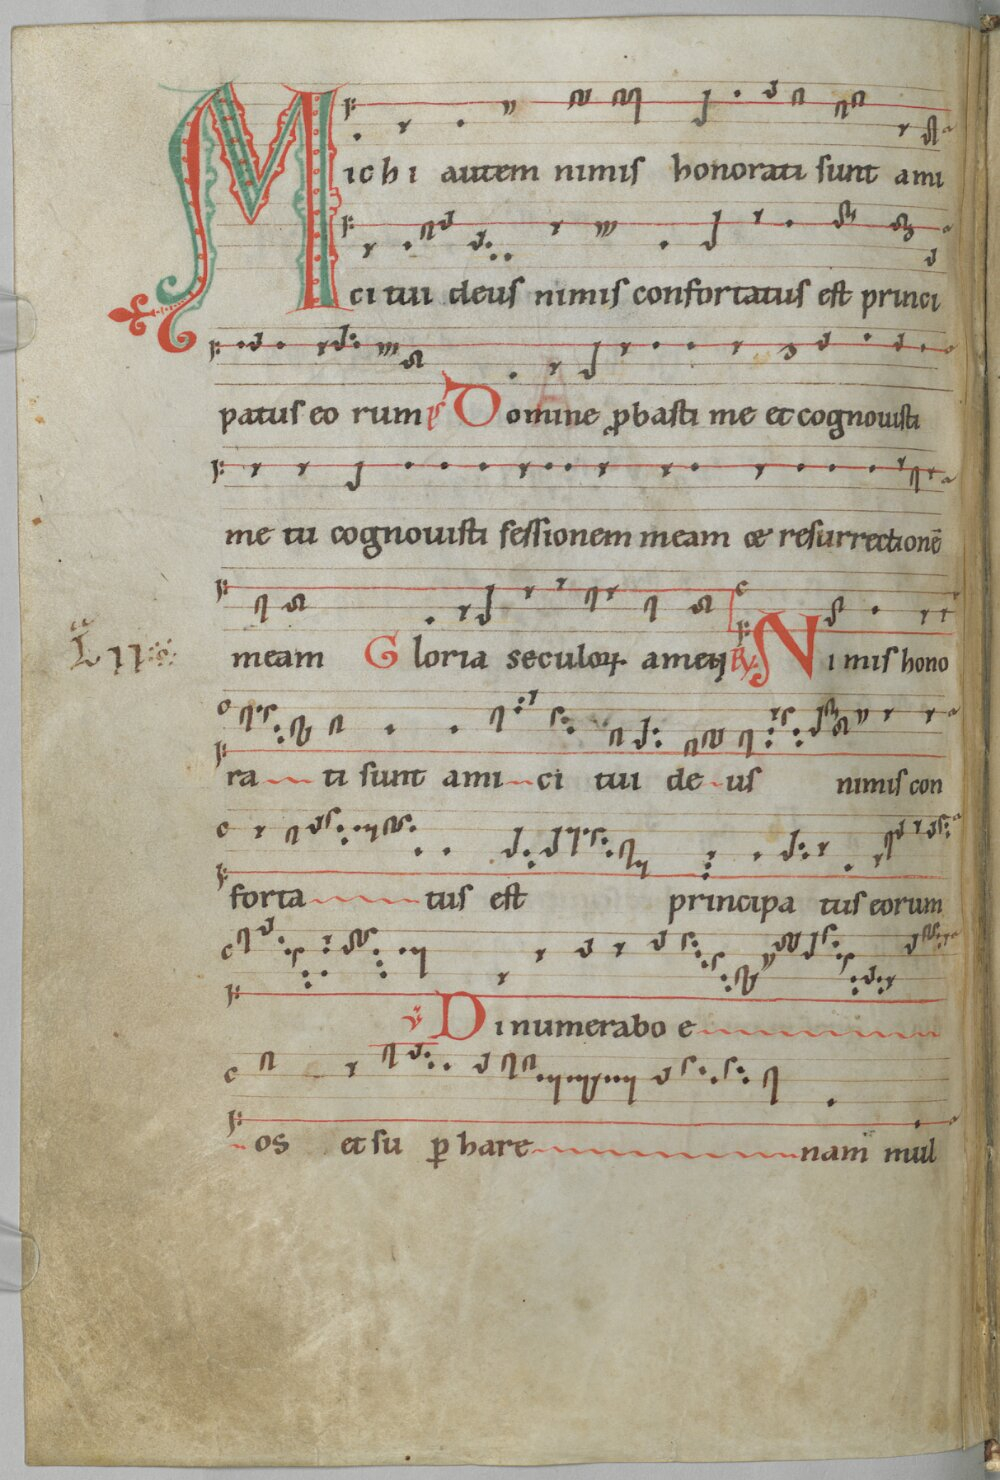 Michi autem nimis honorati sunt ami
ci tui deus nimis confortatus est princi
patus eo rum ps Domine ꝓbasti me et cognouisti
me tu cognouisti sessionem meam & resurrectionē
meam Gloria seculoꝝ. amen ℟ Nimis hono
ra ti sunt ami ci tui de us nimis con
forta tus est principa tus eorum
℣ Dinumerabo e
os et su ꝑ hare nam mul